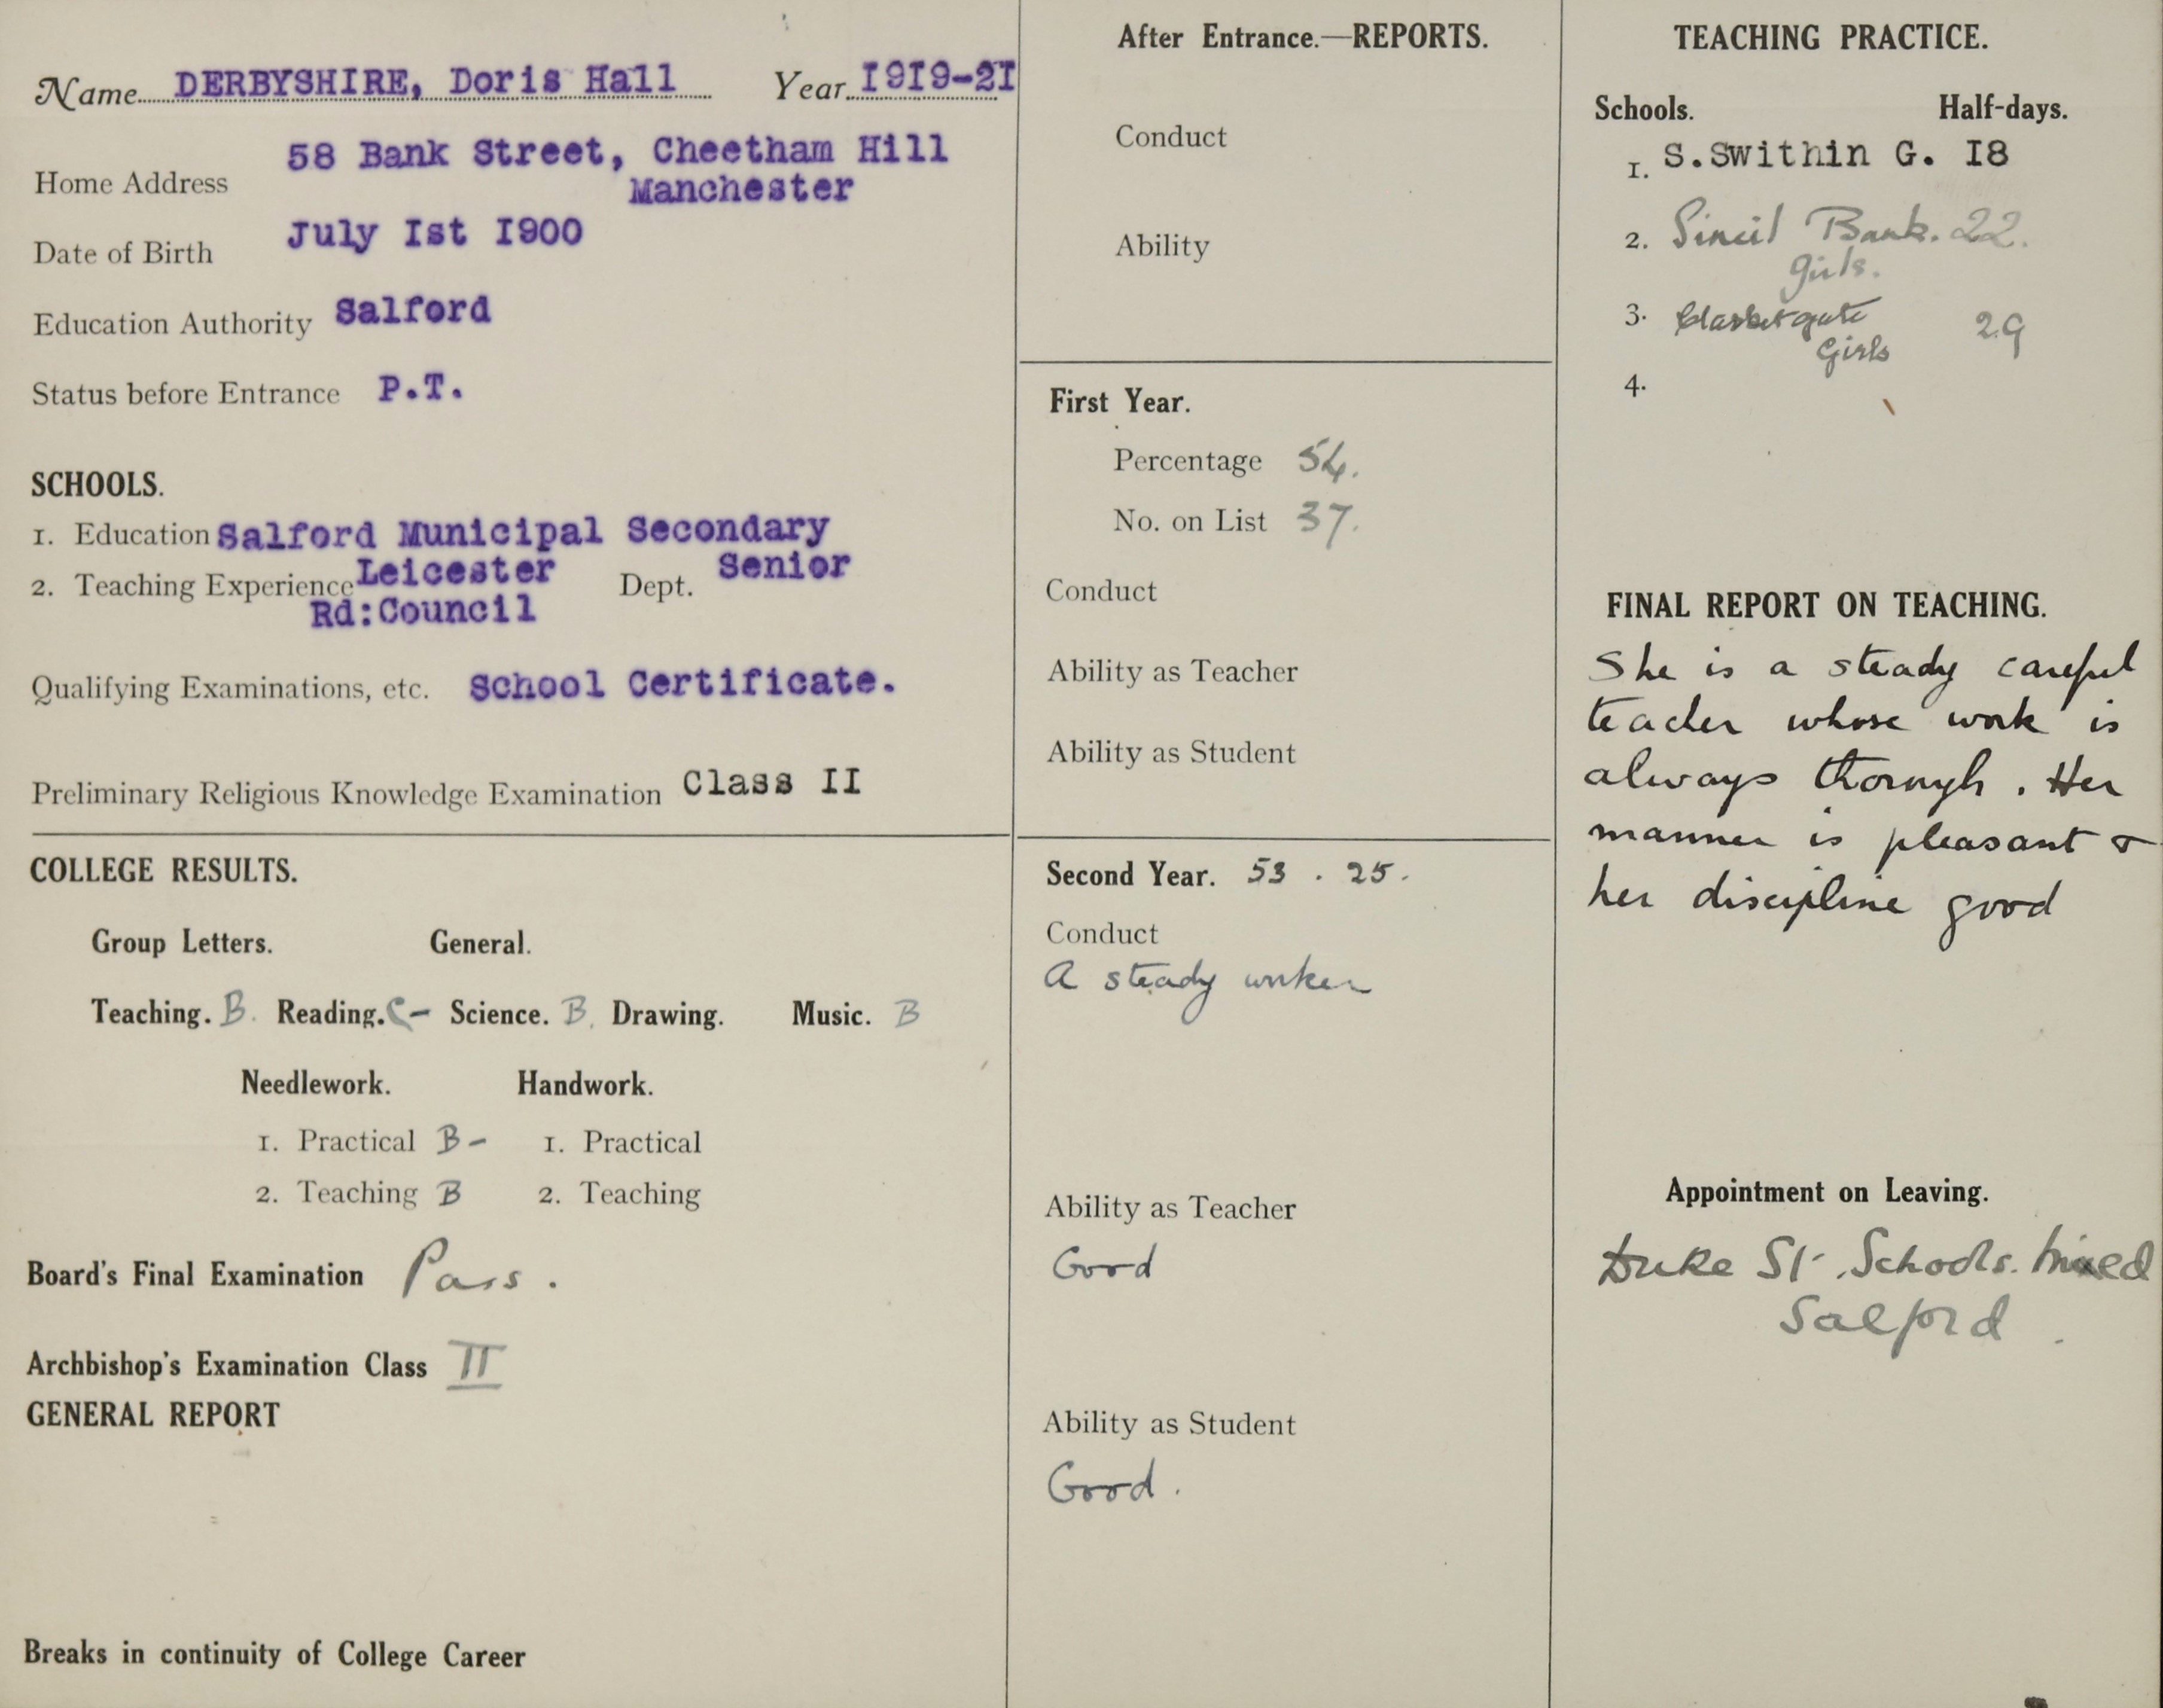 Name DERBYSHIRE, Doris Hall Year 1919-21
Home Address 58 Bank Street, Cheetham Hill
Manchester
Date of Birth July Ist I900
Education Authority Salford
Status before Entrance P.T.
SCHOOLS.
1. Education Salford Municipal Secondary
2. Teaching Experience Leicester Dept. Senior
Rd:Council
Qualifying Examinations, etc. School Certificate.
Preliminary Religious Knowledge Examination Class II
COLLEGE RESULTS.
Group Letters. General.
Teaching. B. Reading. C- Science. B. Drawing. Music. B
Needlework. Handwork.
1. Practical B- 1. Practical
2. Teaching B 2. Teaching
Board's Final Examination Pass.
Archbishop's Examination Class II
GENERAL REPORT
Breaks in continuity of College Career
After Entrance.—REPORTS.
Conduct
Ability
First Year.
Percentage 54.
No. on List 37.
Conduct
Ability as Teacher
Ability as Student
Second Year. 53 . 25.
Conduct
A steady worker
Ability as Teacher
Good
Ability as Student
Good.
TEACHING PRACTICE.
Schools. Half-days.
1. S.Swithin G. I8
2. Sincil Bank. 22.
Girls.
3. Claskergate 29
Girls
4.
FINAL REPORT ON TEACHING.
She is a steady careful
teacher whose work is
always thorough. Her
manner is pleasant &
her discipline good
Appointment on Leaving.
Duke St. Schools. Mixed
Salford.